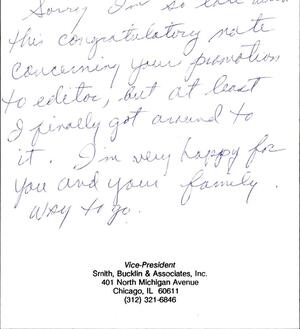 Sorry I'm so late with
this congratulatory note
concerning your promotion
to editor, but at least
I finally got around to
it. I'm very happy for
you and your family.
Way to go.
Vice-President
Smith, Bucklin & Associates, Inc.
401 North Michigan Avenue
Chicago, IL 60611
(312) 321-6846